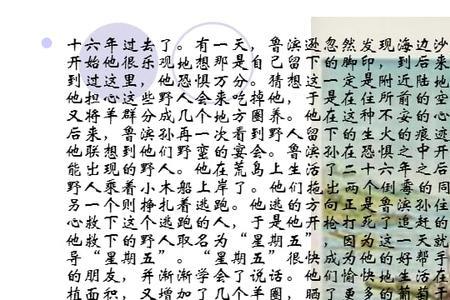 十六年过去了。有一天，鲁滨逊忽然发现海边沙
开始他很乐观地想那是自己留下的脚印，到后来
到过这里，他恐惧万分。猜想这一定是附近陆地
他担心这些野人会来吃掉他，于是在住所前的空
又将羊群分成几个地方圈养。他在这种不安的心
后来，鲁滨孙再一次看到野人留下的生火的痕迹
他联想到他们野蛮的宴会。鲁滨孙在恐惧之中开
能出现的野人。他在荒岛上生活了二十六年之后
野人乘着小木船上岸了。他们拖出两个倒霉的同
另一个则挣扎着逃跑。他逃的方向正是鲁滨孙住
心救下这个逃跑的人，于是他开枪打死了追赶的
他救下的野人取名为“星期五”，因为这一天就
导“星期五”。“星期五”很快成为他的好帮手
的朋友，并渐渐学会了说话。他们愉快地生活在
植面积，又增加了几个羊圈，晒了更多的葡萄干